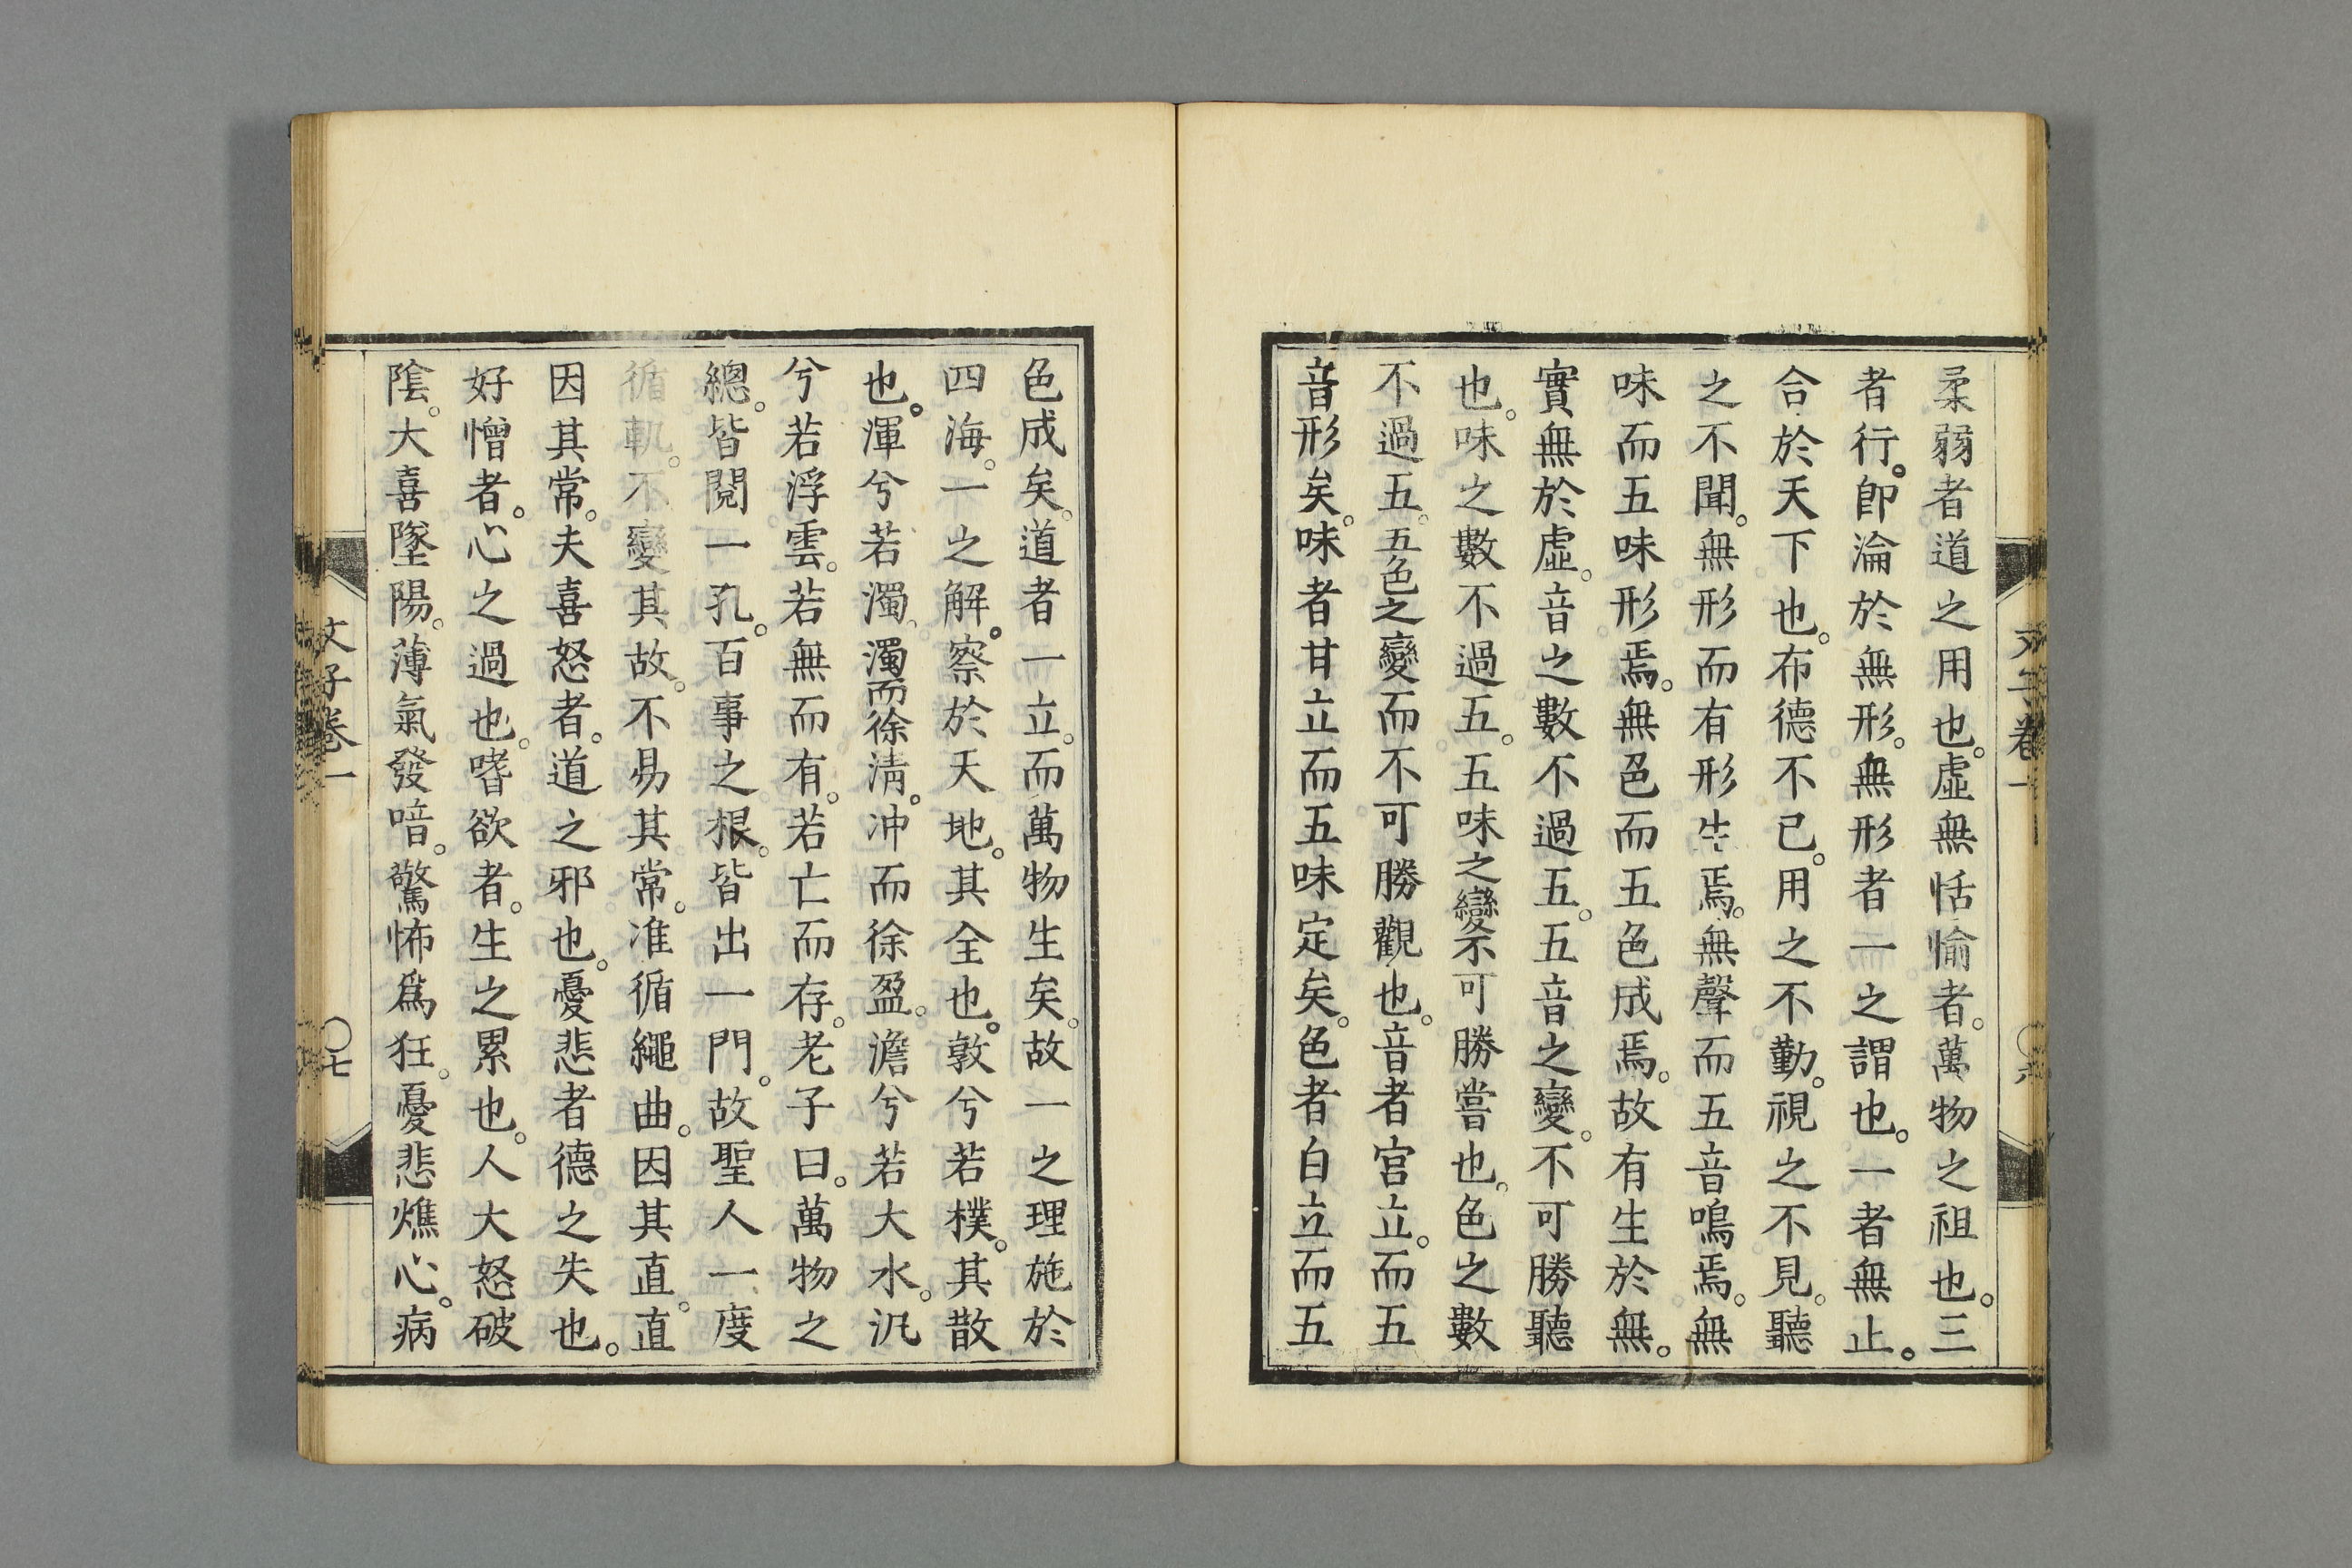 柔弱者道之用也。虛無恬愉者。萬物之祖也。三
者行。卽淪於無形。無形者一之謂也。一者無止。
合於天下也。布德不已。用之不勤。視之不見。聽
之不聞。無形而有形生焉。無聲而五音鳴焉。無
味而五味形焉。無色而五色成焉。故有生於無。
實無於虛。音之數不過五。五音之變。不可勝聽
也。味之數不過五。五味之變不可勝嘗也。色之數
不過五。五色之變而不可勝觀也。音者宮立。而五
音形矣。味者甘立而五味定矣。色者白立而五
色成矣。道者一立。而萬物生矣。故一之理施於
四海。一之解。察於天地。其全也。敦兮若樸。其散
也。渾兮若濁。濁而徐清。沖而徐盈。澹兮若大水。汎
兮若浮雲。若無而有。若亡而存。老子曰。萬物之
總。皆閱一孔。百事之根。皆出一門。故聖人一度
循軌。不變其故。不易其常。准循繩。曲。因其直。直
因其常。夫喜怒者。道之邪也。憂悲者德之失也。
好憎者。心之過也。嗜欲者。生之累也。人大怒破
陰。大喜墜陽。薄氣發喑。驚怖爲狂。憂悲燋心。病
文子卷一
〇七